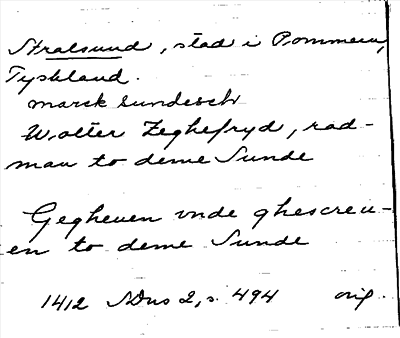 Stralsund, stad i Pommern,
Tyskland.
marck sundesch
Wolter Zeghefryd, rad-
man to deme Sunde
Gegheuen vnde ghescreu-
en to deme Sunde
1412 SDns 2, s. 494 orig.